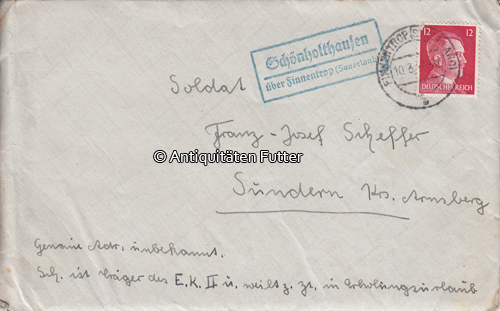 Schönholthausen
über Finnentrop (Sauerland)
12 12
DEUTSCHES REICH
FINNENTROP
10.3.
Soldat
Franz-Josef Scheffer
© Antiquitäten Futter
Sundern Krs. Arnsberg
Genaue Adr. unbekannt.
Sch. ist Träger des E.K.II u. weilt z. Zt. in Erholungsurlaub